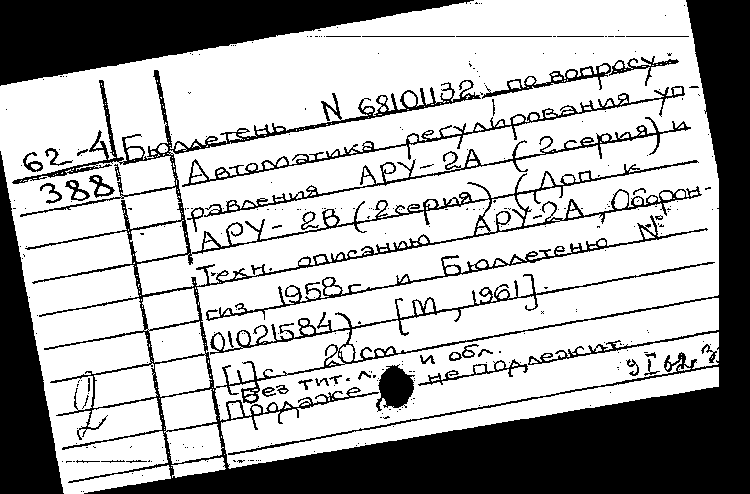 62-4
388
Бюллетень N 68101132, по вопросу:
Автоматика регулирования уп-
равления АРУ-2А (2 серия) и
АРУ-2В (2 серия). (Доп. к
техн. описанию АРУ-2А, Оборон-
гиз, 1958г. и Бюллетеню №
01021584). [М, 1961].
[1]с. 20см.
Без тит. л. и обл.
Продаже не подлежит.
9 I 62г.
2